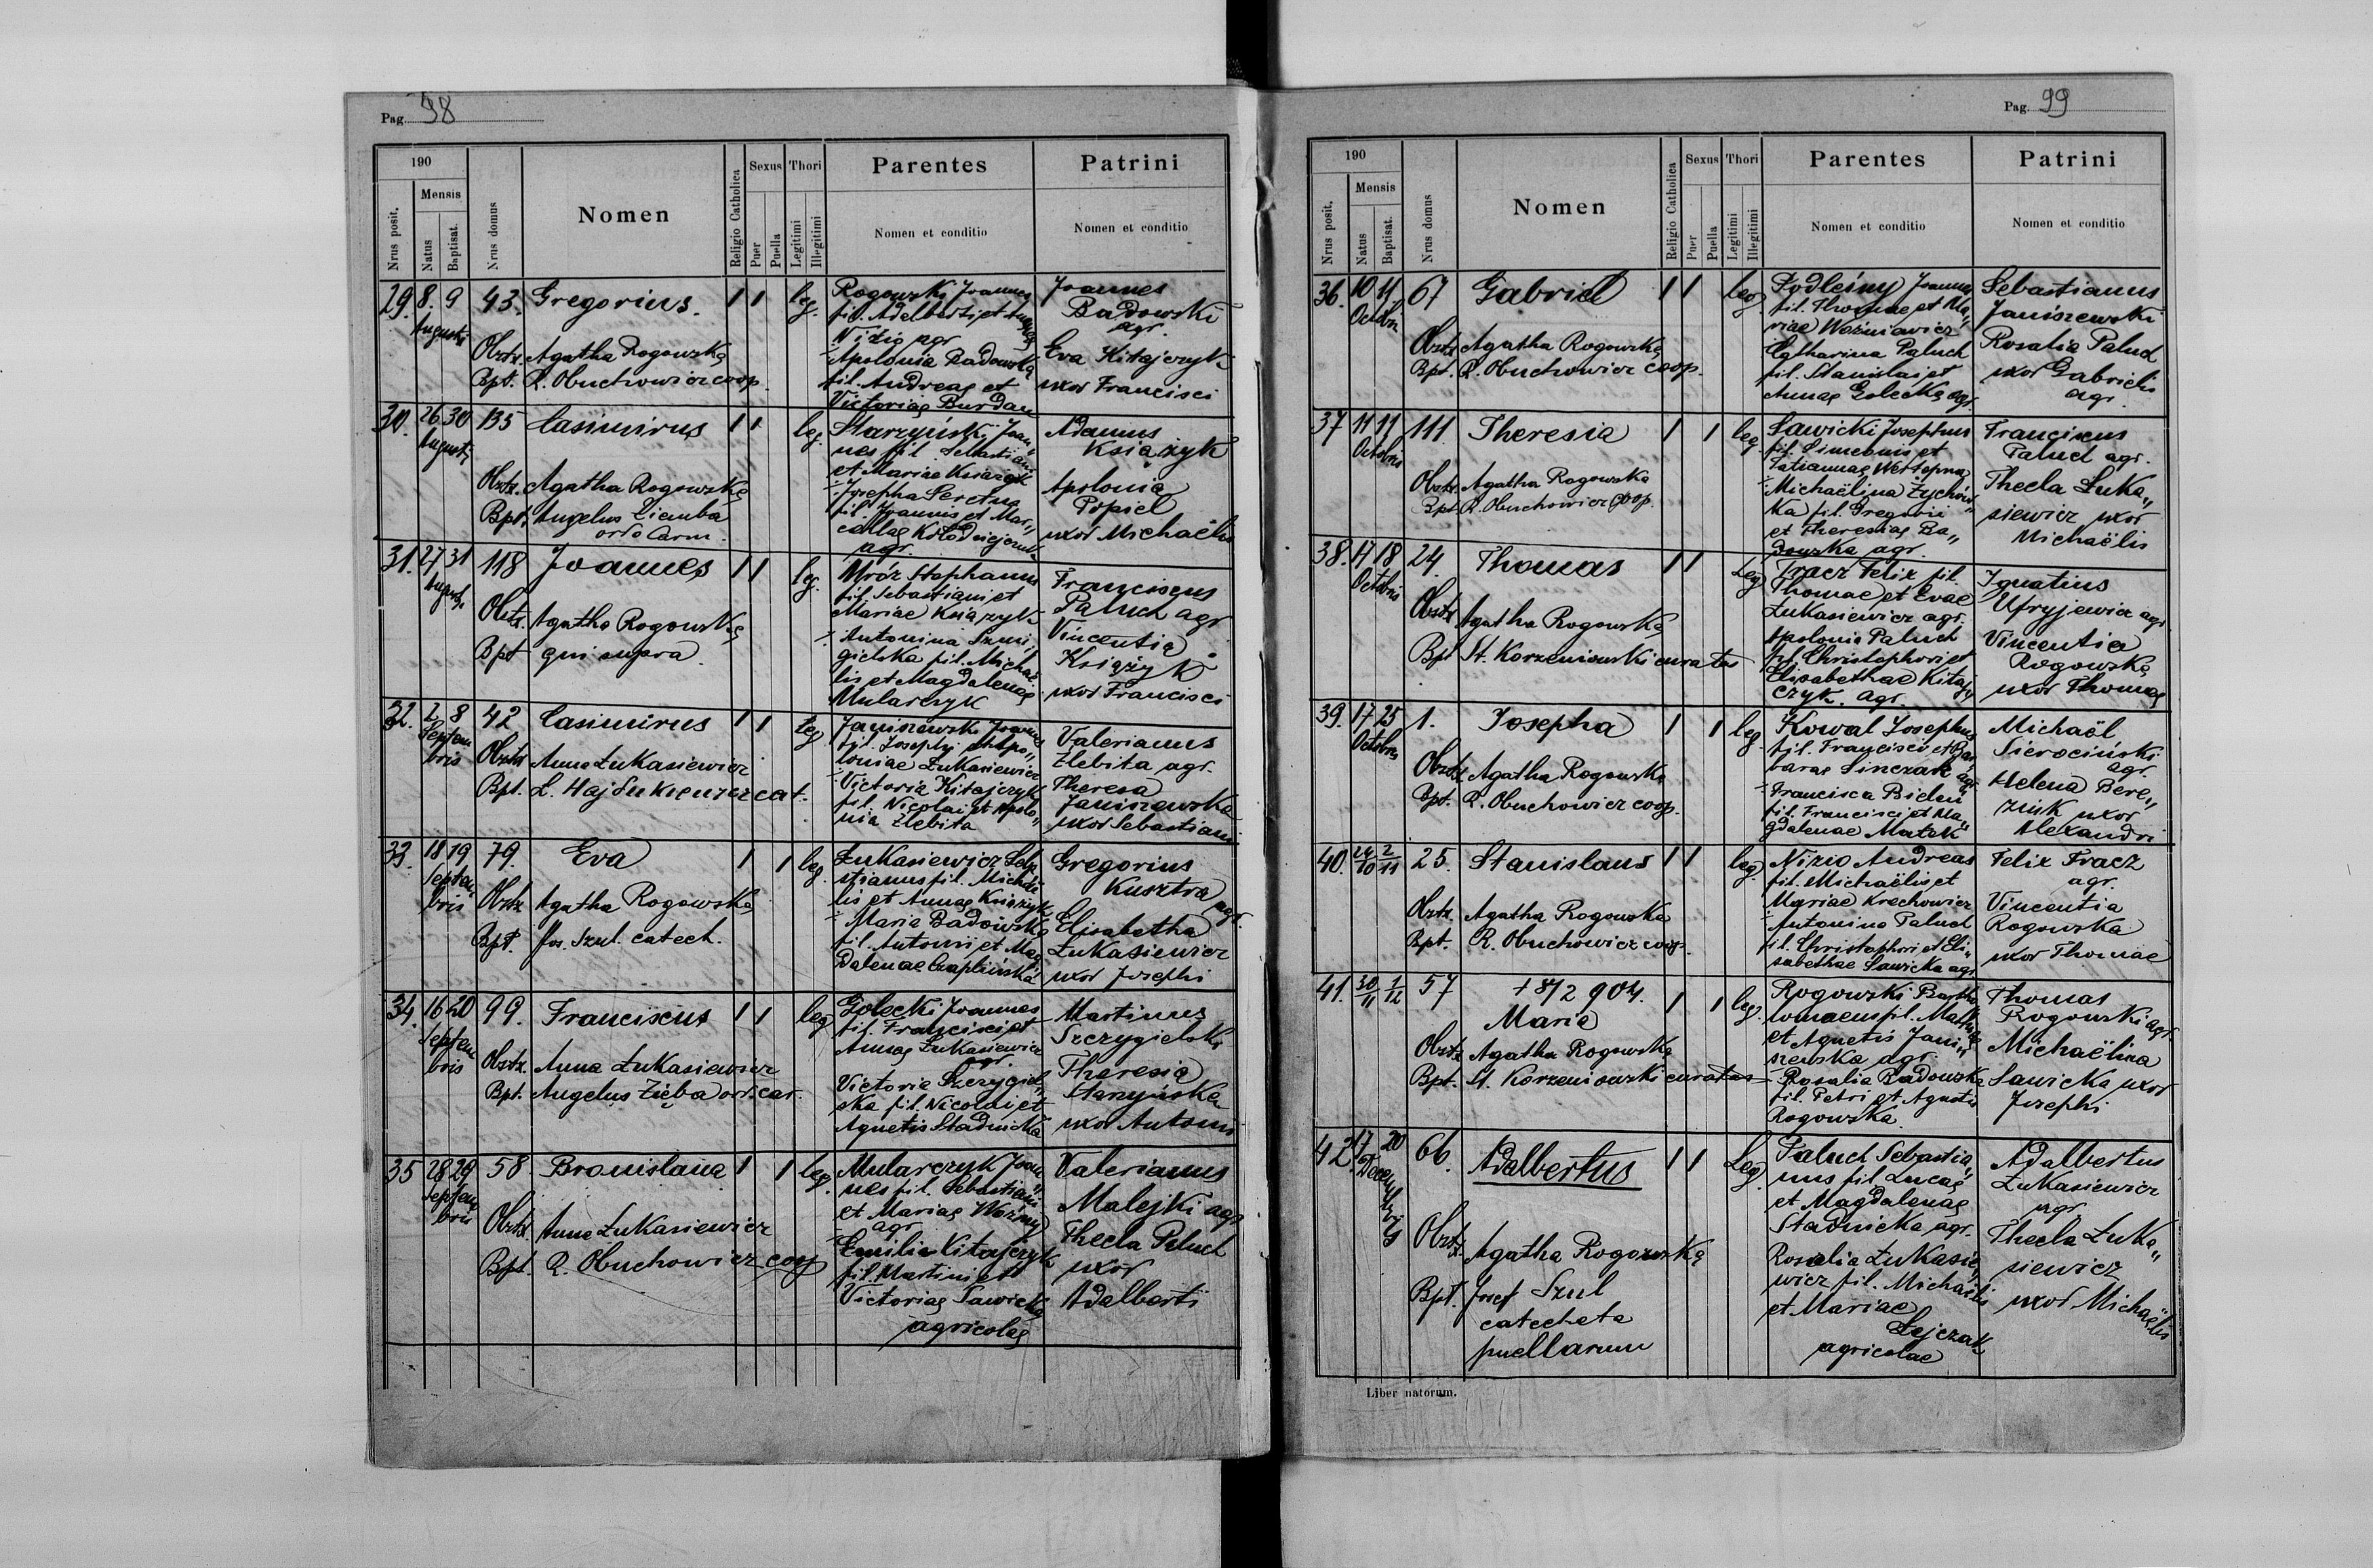 Pag. 98
190
Nrus posit.
Mensis
Natus
Baptisat.
Nrus domus
Nomen
Religio Catholica
Sexus
Puer
Puella
Thori
Legitimi
Illegitimi
Parentes
Nomen et conditio
Patrini
Nomen et conditio
29. 8. 9 43. Gregorius. 1 1 leg.
Augusti
Obstr. Agatha Rogowska
Bpt. R. Obuchowicz coop.
Rogowski Joannes
fil. Adelberti et
Nizio agr
Apolonia Badowska
fil. Andreae et
Victoriae Burdan
Joannes
Badowski
agr.
Eva Kitajczyk
uxor Francisci
30. 26 30 135 Casimirus 1 1 leg.
Augusti
Obstr. Agatha Rogowska
Bpt. Angelus Ziemba
ord. Carm.
Starzyński Joan„
nes fil. Sebastiani
et Mariae Książyk
Josepha Seretna
fil. Joannis et Mar„
cellae Kołodziejczuk
agr.
Adamus
Książyk
Apolonia
Popiel
uxor Michaëlis
31. 27 31 118 Joannes 1 1 leg.
Augusti
Obstr. Agatha Rogowska
Bpt qui supra.
Mróz Stephanus
fil. Sebastiani et
Mariae Książyk
Antonina Szmi„
gielska fil. Michaë
lis et Magdalenae
Mularczyk
Franciscus
Paluch agr
Vincentia
Książyk
uxor Francisci
32. 2 8 42 Casimirus 1 1 leg
Septem
bris
Obstr Anna Łukasiewicz
Bpt. L. Hajdukiewicz cat.
Janiszewski Joannes
fil. Josephi et Apo„
loniae Łukasiewicz
Victoria Kitajczyk
fil. Nicolai et Apolo„
nia Zlebita
Valerianus
Zlebita agr.
Theresa
Janiszewska
uxor Sebastiani
33. 18 19 79. Eva 1 1 leg.
Septem
bris
Obstr Agatha Rogowska
Bpt. Jos. Szul. catech.
Łukasiewicz Seba
stianus fil. Michaë
lis et Annae Książyk
Maria Badowska
fil. Antonii et Mag
dalenae Czaplińska
Gregorius
Kusztra agr.
Elisabetha
Łukasiewicz
uxor Josephi
34. 16 20 99. Franciscus 1 1 leg
Septem
bris
Obstr. Anna Łukasiewicz
Bpt. Angelus Zięba ord. car.
Golecki Joannes
fil. Francisci et
Annae Łukasiewicz
agr.
Victoria Szczygiel„
ska fil. Nicolai et
Agnetis Stadnicka
Martinus
Szczygielski
Theresia
Starzyńska
uxor Antonii
35 28 29 58 Bronislava 1 1 leg.
Septem
bris
Obstr. Anna Łukasiewicz
Bpt. R. Obuchowicz coop
Mularczyk Joan„
nes fil. Sebastiani
et Mariae Woźny
agr
Emilia Kitajczyk
fil. Martini et
Victoriae Sawicka
agricolae
Valerianus
Malejki agr
Thecla Paluch
uxor
Adalberti
Pag. 99
190
Nrus posit.
Mensis
Natus
Baptisat.
Nrus domus
Nomen
Religio Catholica
Sexus
Puer
Puella
Thori
Legitimi
Illegitimi
Parentes
Nomen et conditio
Patrini
Nomen et conditio
36. 10 11 67 Gabriel 1 1 leg.
Octobri
Obstr Agatha Rogowska
Bpt. R. Obuchowicz coop.
Podleśny Joannes
fil. Thomae et Ma„
riae Woźniewicz
Catharina Paluch
fil. Stanislai et
Annae Golecka agr.
Sebastianus
Janiszewski
Rosalia Paluch
uxor Gabrielis
agr.
37 11 11 111 Theresia 1 1 leg.
Octobris
Obstr. Agatha Rogowska
Bpt R. Obuchowicz coop.
Sawicki Josephus
fil. Simeonis et
Tatiannae
Michaëlina Żychow„
ka fil. Gregorii
et Theresiae Ba„
dowska agr.
Franciscus
Paluch agr.
Thecla Łuka„
siewicz uxor
Michaëlis
38. 17 18 24. Thomas 1 1 Leg
Octobris
Obstr Agatha Rogowska
Bpt St. Korzeniowski curatus
Tracz Felix fil.
Thomae et Evae
Łukasiewicz agr.
Apolonia Paluch
fil. Christophori et
Elisabethae Kitaj„
czyk. agr.
Ignatius
Ufryjewicz agr
Vincentia
Rogowska
uxor Thomae
39. 17 25 1. Josepha 1 1 leg
Octobris
Obstr Agatha Rogowska
Bpt. R. Obuchowicz coop.
Kowal Josephus
fil. Francisci et Bar
barae Sinczak agr
Francisca Bielen
fil. Francisci et Ma„
gdalenae Matek
Michaël
Sierociński
agr.
Helena Bere„
ziuk uxor
Alexandri
40. 24/10 2/11 25. Stanislaus 1 1 leg.
Obstr. Agatha Rogowska
Bpt. R. Obuchowicz coop.
Nizio Andreas
fil. Michaëlis et
Mariae Krechowicz
Antonina Paluch
fil. Christophori et Eli„
sabethae Sawicka agr
Felix Tracz
agr.
Vincentia
Rogowska
uxor Thomae
41. 30/11 1/12 57 + 8/2 904. 1 1 leg.
Maria
Obstr Agatha Rogowska
Bpt. St. Korzeniowski curatus
Rogowski Bartho
lomaeus fil. Mathiae
et Agnetis Jani„
szewska agr.
Rosalia Badowska
fil. Petri et Agnetis
Rogowska
Thomas
Rogowski agr.
Michaëlina
Sawicka uxor
Josephi
42. 17 20 66. Adalbertus 1 1 Leg.
Decembris
Obstr. Agatha Rogowska
Bpt. Josef Szul
catecheta
puellarum
Paluch Sebastia„
nus fil. Lucae
et Magdalenae
Stadnicka agr.
Rosalia Łukasie„
wicz fil. Michaëlis
et Mariae
Łejczak
agricolae
Adalbertus
Łukasiewicz
agr.
Thecla Łuka„
siewicz
uxor Michaëlis
Liber natorum.